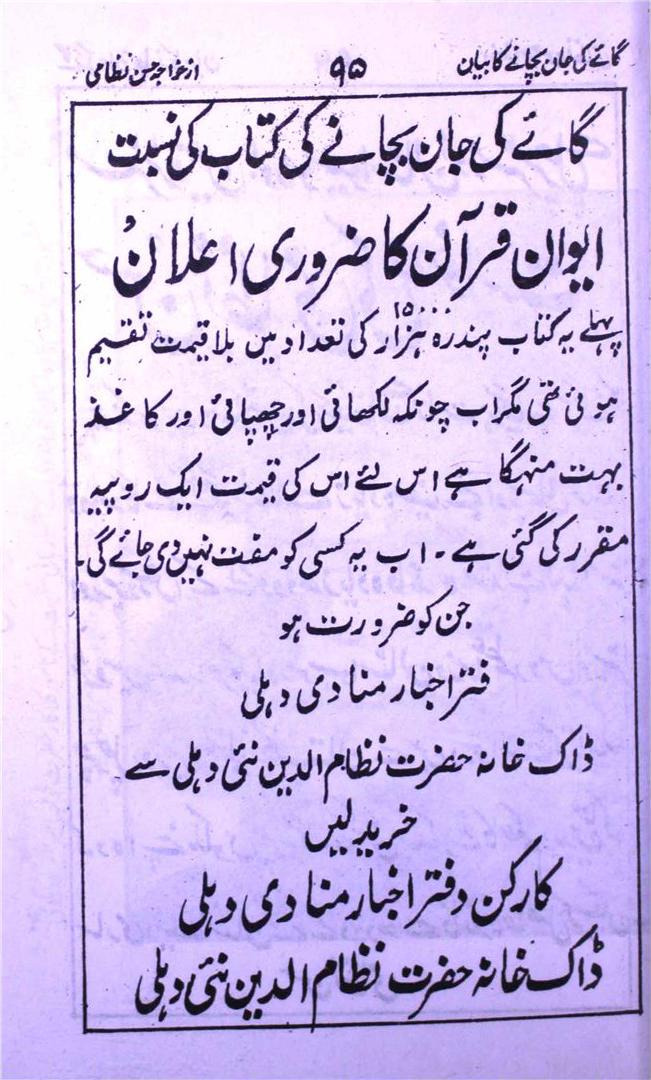 گائے کی جان بچانے کا بیان ۹۵ از خواجہ حسن نظامی
گائے کی جان بچانے کی کتاب کی نسبت
ایوان قرآن کا ضروری اعلان
پہلے یہ کتاب پندرہ ہزار ۱۵۰۰۰ کی تعداد میں بلا قیمت تقسیم
ہوئی تھی مگر اب چونکہ لکھائی اور چھپائی اور کاغذ
بہت منہگا ہے اس لئے اس کی قیمت ایک روپیہ
مقرر کی گئی ہے۔ اب یہ کسی کو مفت نہیں دی جائے گی۔
جن کو ضرورت ہو
فتر اخبار منادی دہلی
ڈاک خانہ حضرت نظام الدین نئی دہلی سے
خرید لیں
کارکن دفتر اخبار منادی دہلی
ڈاک خانہ حضرت نظام الدین نئی دہلی